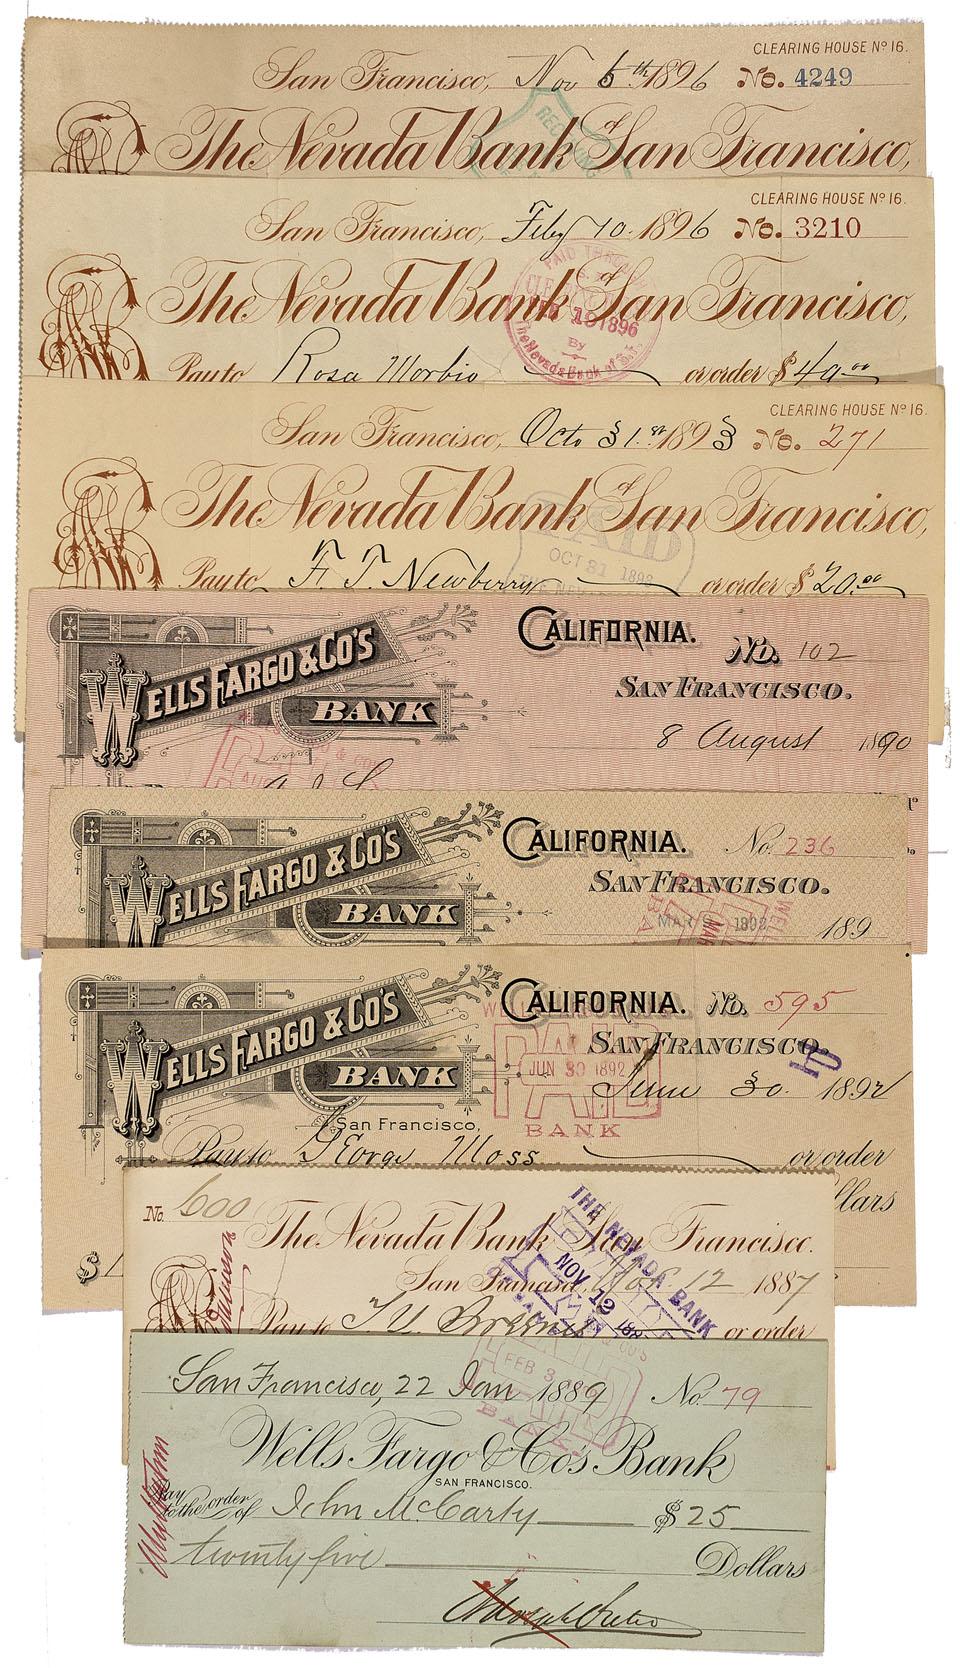 CLEARING HOUSE Nº 16.
San Francisco, Nov 6th 1896 No. 4249
The Nevada Bank of San Francisco,
CLEARING HOUSE Nº 16.
San Francisco, Feby 10 1896 No. 3210
PAID THROUGH
The Nevada Bank of San Francisco,
1896
By
The Nevada Bank of S.F.
Pay to Rosa Morbio or order $ 40.00
CLEARING HOUSE Nº 16.
San Francisco, Octo 31.st 1893 No. 271
The Nevada Bank of San Francisco,
PAID
OCT 31 1893
Pay to F. T. Newberry or order $ 20.00
WELLS FARGO & CO'S
BANK
CALIFORNIA.
No. 102
SAN FRANCISCO.
8 August 1890
WELLS FARGO & CO'S
BANK
CALIFORNIA. No. 236
SAN FRANCISCO.
MAR 1892 189
WELLS FARGO & CO'S
BANK
CALIFORNIA. No. 595
SAN FRANCISCO.
PAID
JUN 30 1892
BANK
June 30. 1892
San Francisco,
Pay to George Moss or order
Dollars
$
No. 600
The Nevada Bank San Francisco.
THE NEVADA BANK
NOV 12
San Francisco, Nov. 12 1887
Pay to or order
FEB
BANK
San Francisco, 22 Jan 1889 No. 79
Wells Fargo & Co's Bank
SAN FRANCISCO.
Pay to the order of John McCarty $ 25
twenty five Dollars
Adolph Sutro